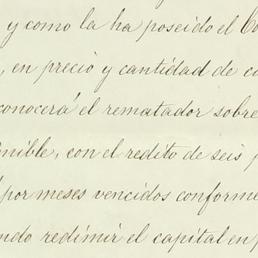 y como la ha poseido el Co
, en precio y cantidad de c
conocerá el rematador sobre
nible, con el redito de seis p
por meses vencidos conforme
ndo redimir el capital en p